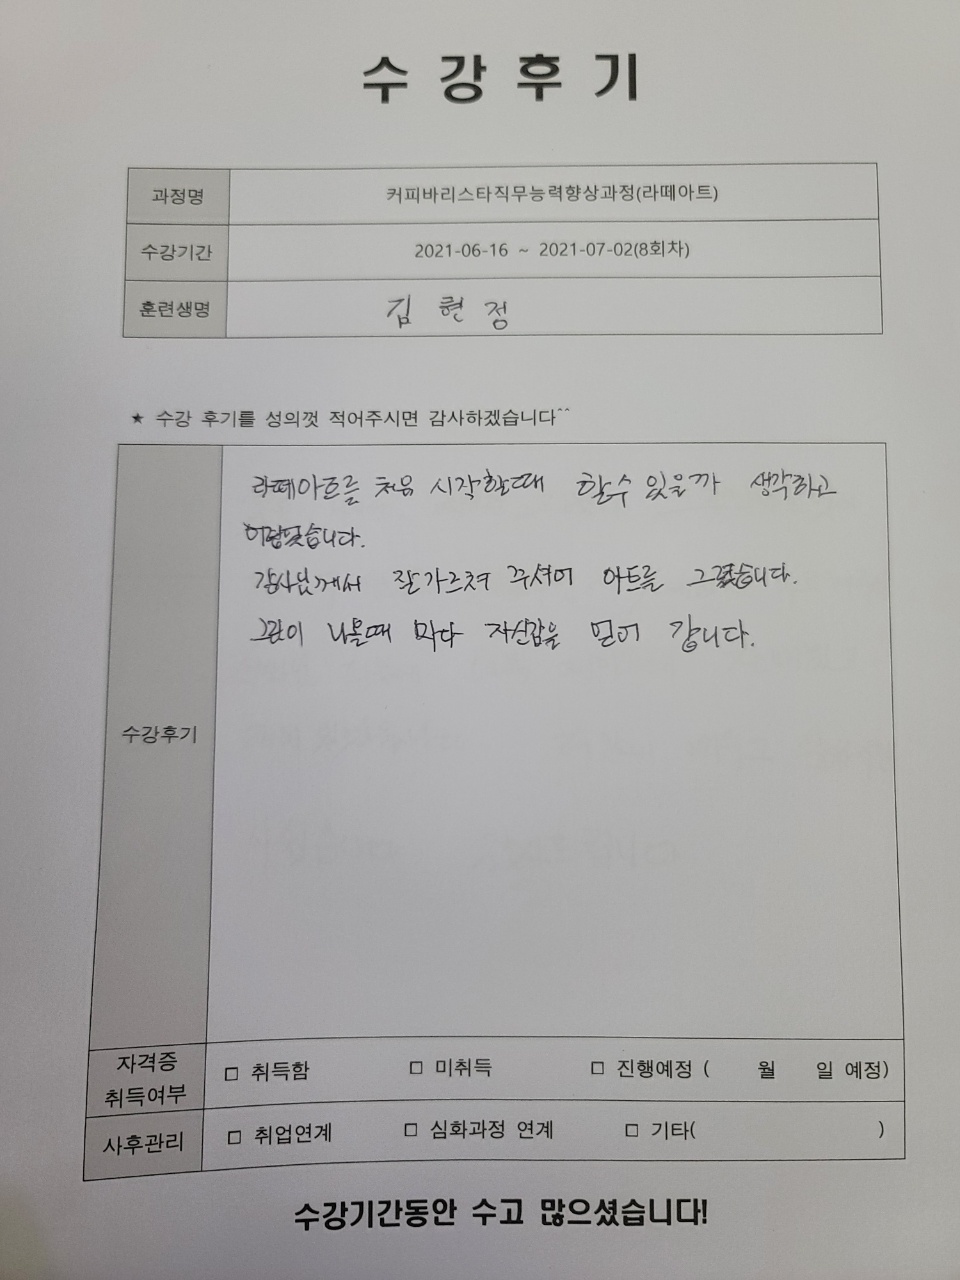 수강후기
과정명 커피바리스타직무능력향상과정(라떼아트)
수강기간 2021-06-16 ~ 2021-07-02(8회차)
훈련생명 김 현 정
★ 수강 후기를 성의껏 적어주시면 감사하겠습니다^^
라떼아트를 처음 시작할때 할수 있을까 생각하고
강사님께서 잘가르쳐 주셔어 아트를 그렸습니다.
그림이 나올때 마다 자신감을 얻어 갑니다.
수강후기
자격증
취득여부
□ 취득함 □ 미취득 □ 진행예정 ( 월 일 예정)
사후관리 □ 취업연계 □ 심화과정 연계 □ 기타( )
수강기간동안 수고 많으셨습니다!